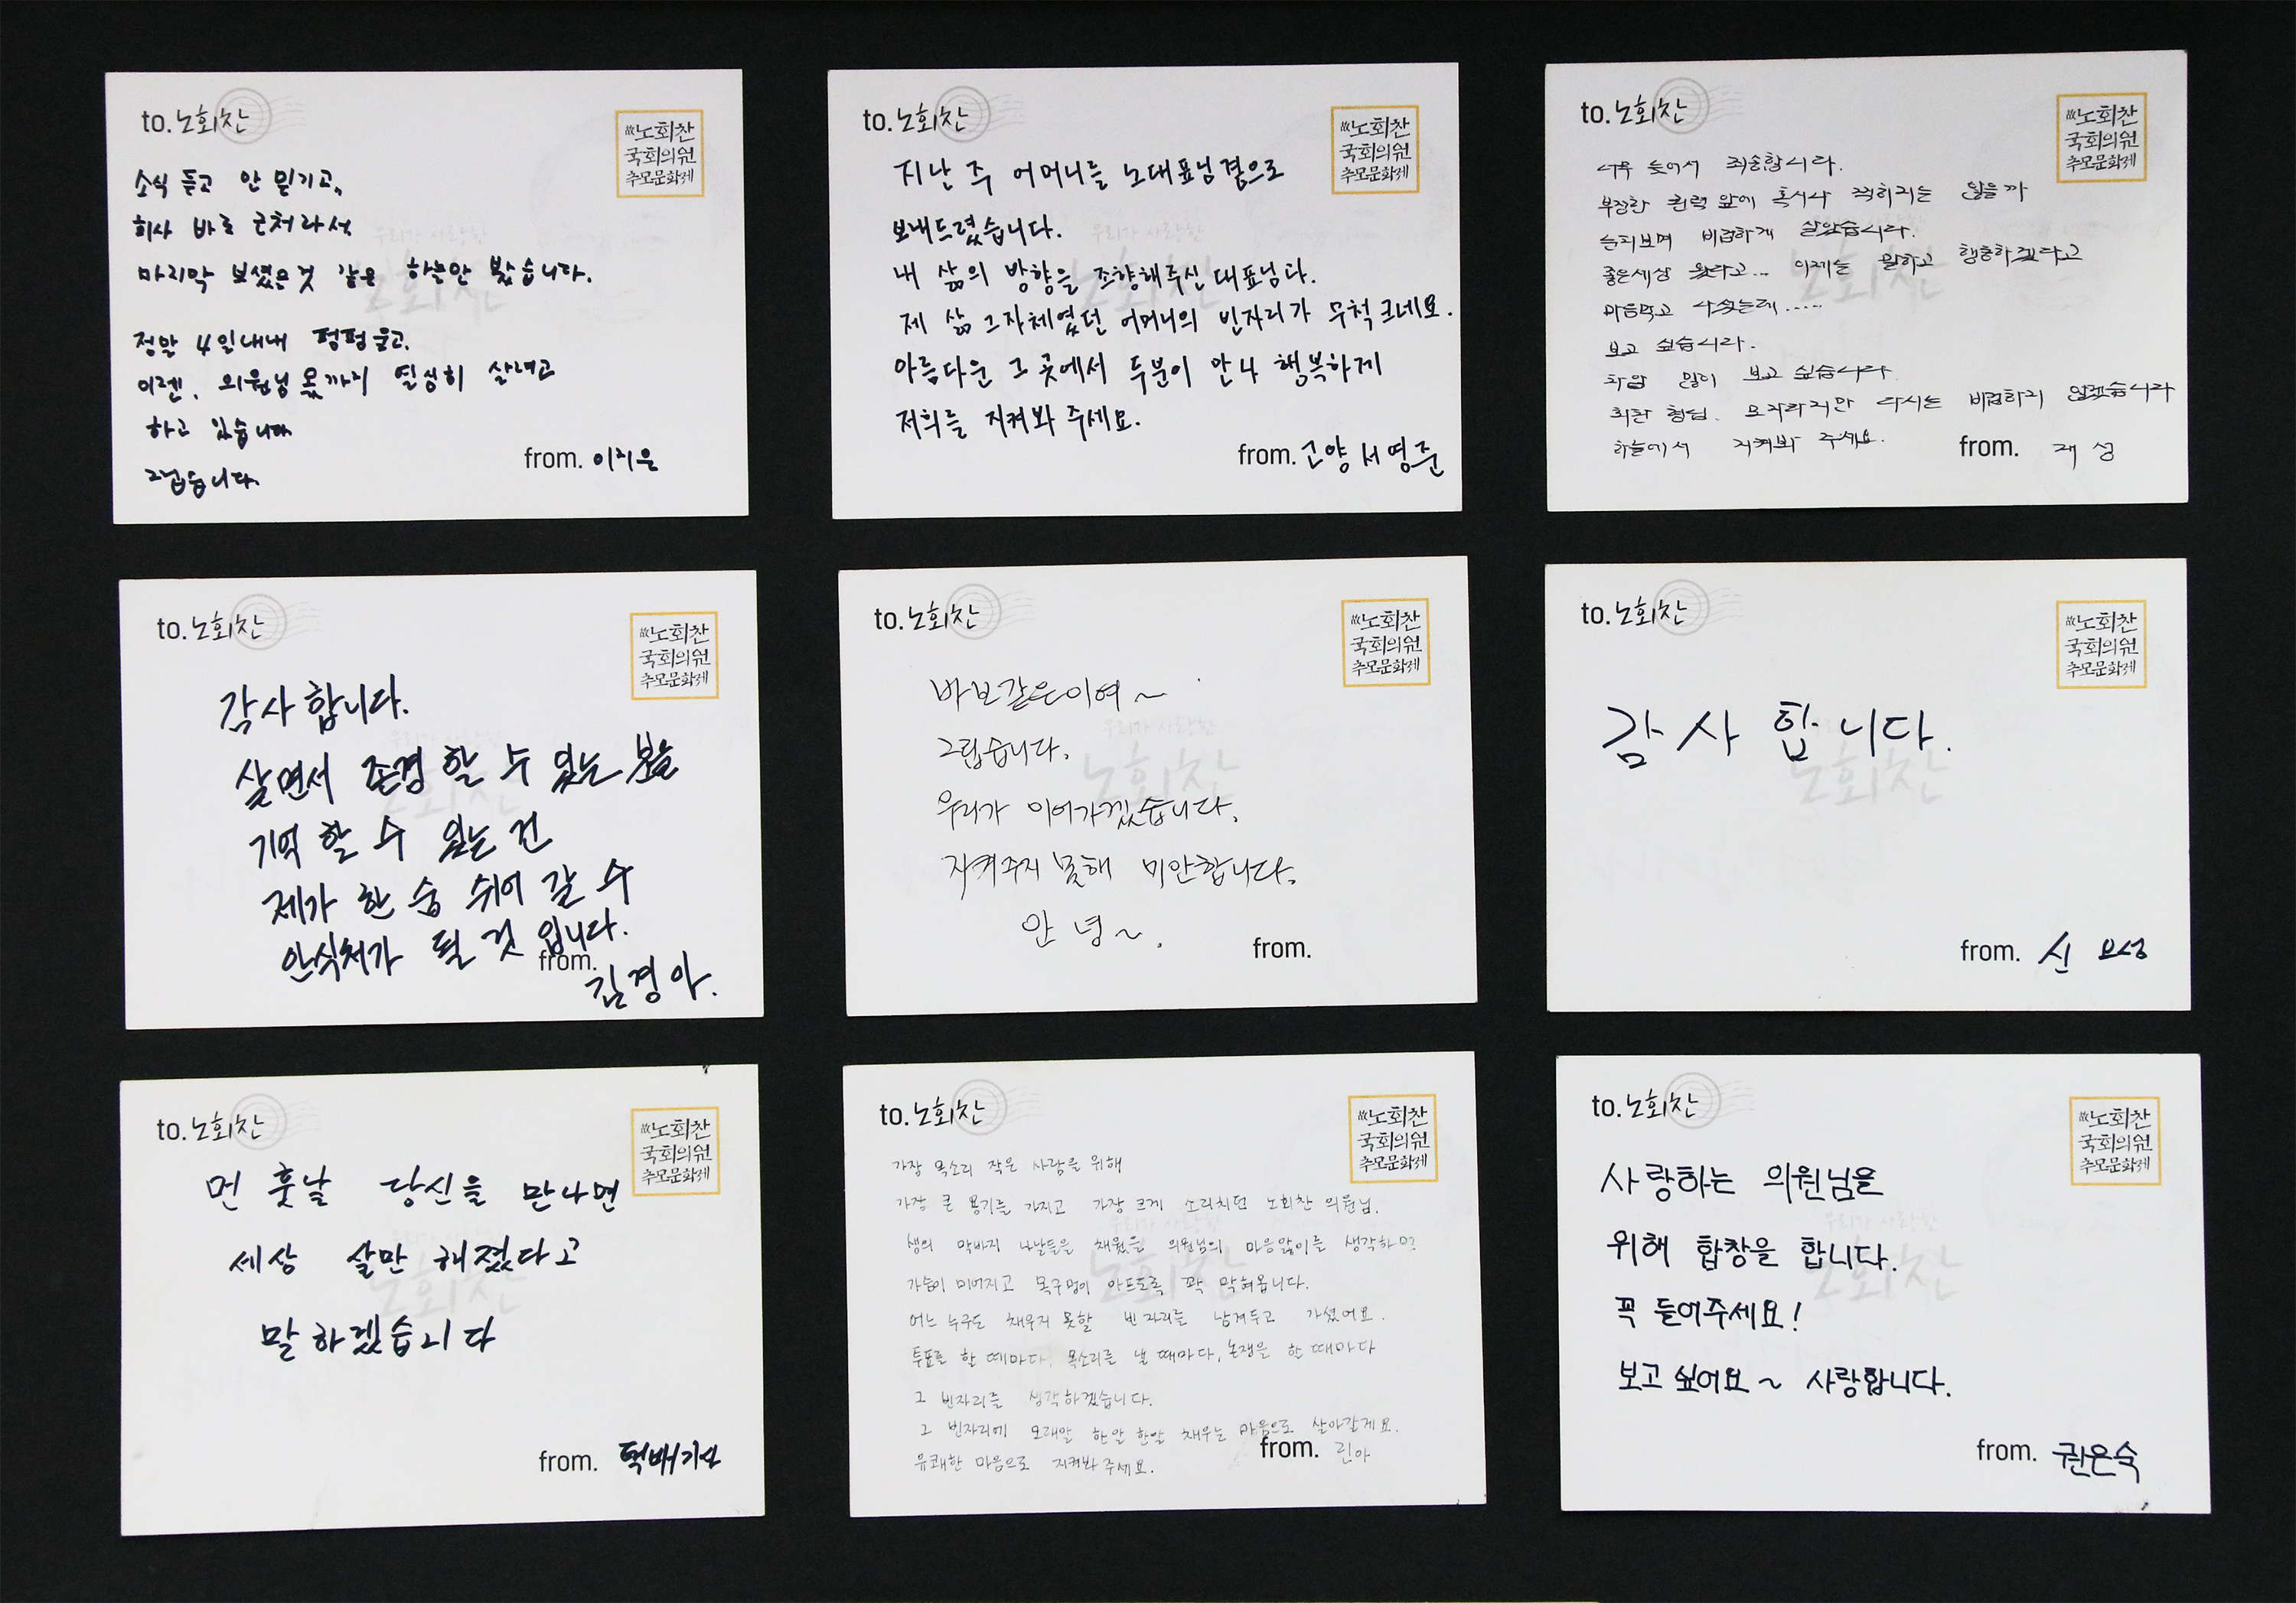 to. 노회찬
故노회찬
국회의원
추모문화제
소식 듣고 안 믿기고,
회사 바로 근처라서
마지막 보셨을것 같은 하늘만 봤습니다.
정말 4일내내 펑펑 울고,
이젠, 의원님 몫까지 열심히 살려고
하고 있습니다
그립습니다.
from. 이지은
to. 노회찬
故노회찬
국회의원
추모문화제
지난 주 어머니를 노대표님 곁으로
보내드렸습니다.
내 삶의 방향을 조향해주신 대표님과.
제 삶 그자체였던 어머니의 빈자리가 무척 크네요.
아름다운 그 곳에서 두분이 만나 행복하게
저희를 지켜봐 주세요.
from. 고양 서영준
to. 노회찬
故노회찬
국회의원
추모문화제
너무 늦어서 죄송합니다.
부정한 권력 앞에 혹시나 찍히지는 않을까
눈치보며 비겁하게 살았습니다.
좋은세상 왔다고... 이제는 말하고 행동하겠다고
마음먹고 나섰는데.....
보고 싶습니다.
차암 많이 보고 싶습니다.
회찬 형님. 모자라지만 다시는 비겁하지 않겠습니다
하늘에서 지켜봐 주세요.
from. 재성
to. 노회찬
故노회찬
국회의원
추모문화제
감사합니다.
살면서 존경 할 수 있는 분을
기억 할 수 있는 건
제가 한 숨 쉬어 갈 수
안식처가 될 것 입니다.
from. 김경아.
to. 노회찬
故노회찬
국회의원
추모문화제
우리가 사랑한
노회찬
바보같은이여~
그립습니다.
우리가 이어가겠습니다.
지켜주지 못해 미안합니다.
안녕~.
from.
to. 노회찬
故노회찬
국회의원
추모문화제
감사 합니다.
from. 신 요섭
to. 노회찬
故노회찬
국회의원
추모문화제
먼 훗날 당신을 만나면
세상 살만 해졌다고
말하겠습니다
from. 택배기사
to. 노회찬
故노회찬
국회의원
추모문화제
가장 목소리 작은 사람을 위해
가장 큰 용기를 가지고 가장 크게 소리치던 노회찬 의원님.
생의 막바지 나날들을 채웠을 의원님의 마음앓이를 생각하면
가슴이 미어지고 목구멍이 아프도록 꽉 막혀옵니다.
어느 누구도 채우지 못할 빈 자리를 남겨두고 가셨어요.
투표를 할 때마다, 목소리를 낼 때마다, 논쟁을 할 때마다
그 빈자리를 생각하겠습니다.
그 빈자리에 모래알 한알 한알 채우는 마음으로 살아갈게요.
유쾌한 마음으로 지켜봐 주세요.
from. 린아
to. 노회찬
故노회찬
국회의원
추모문화제
사랑하는 의원님을
위해 합창을 합니다.
꼭 들어주세요!
보고 싶어요~ 사랑합니다.
from. 권은숙